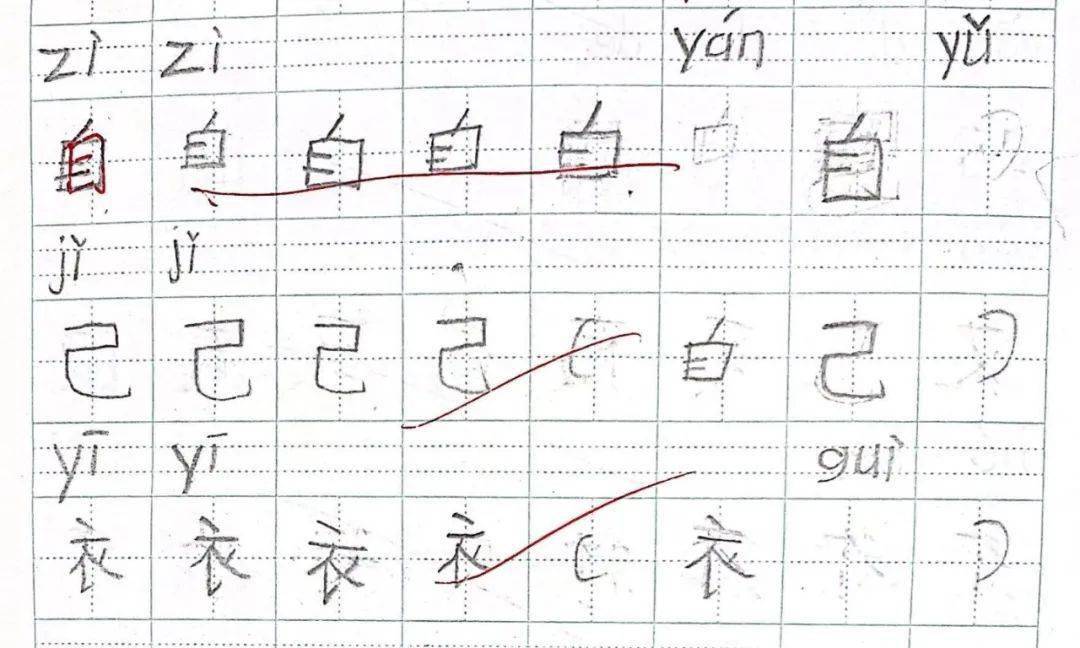 zì zì yán yǔ
自 自 自 自 自 自
jǐ jǐ
己 己 己 己 ( 自 己 )
yī yī guì
衣 衣 衣 衣 ( 衣 )